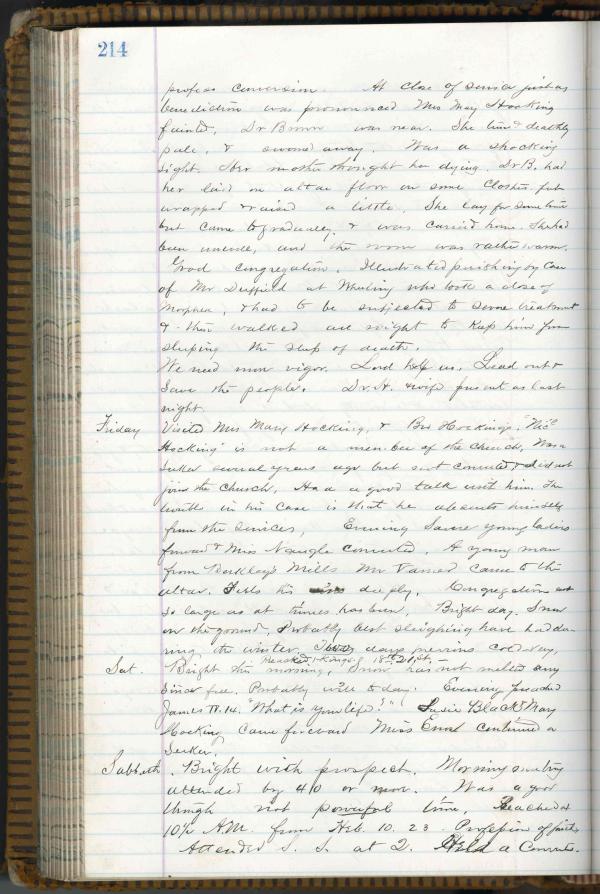 214
profess conversion. At close of service just as
benediction was pronounced Miss May Hocking
fainted, Dr Brown was near. She turned deathly
pale, & swooned away. Was a shocking
sight. Her mother thought her dying. Dr B. had
her laid on altar floor on some clothes, fut
wrapped & raised a little. She lay for some time
but came to gradually, & was carried home. She had
been unwell, and the room was rather warm.
Good congregation. Illustrated punishing by case
of Mr Duffield at Wheeling who took a dose of
morphia, & had to be subjected to severe treatment
& then walked all night to keep him from
sleeping the sleep of death.
We need more vigor. Lord help us. Lead out &
save the people. Dr. H. & wife present as last
night.
Friday Visited Miss Mary Hocking, & Bro Hockings. "Nic
Hocking" is not a member of the church. Was a
seeker several years ago but not converted & did not
join the church. Had a good talk with him. The
trouble in his case is that he absents himself
from the services. Evening Several young ladies
forward & Miss Naugle converted. A young man
from Barkley's Mills Mr came to the
altar. Feels his deeply. Congregations not
so large as at times has been. Bright day. Snow
on the ground. Probably best sleighing have had du-
ring the winter. days previous cold day.
Reached 1 Kings 18th 21st.
Sat. Bright this morning, Snow has not melted any
since fell. Probably will to day. Evening preached
James IV. 14. "What is your life?" Susie Black & Mary
Hocking came forward Miss continued a
seeker.
Sabbath. Bright with prospect. Morning meeting
attended by 40 or more. Was a good
though not powerful time. Preached at
10½ A.M. from Heb. 10. 23. Profession of faith.
Attended S. S. at 2. Held a Converts